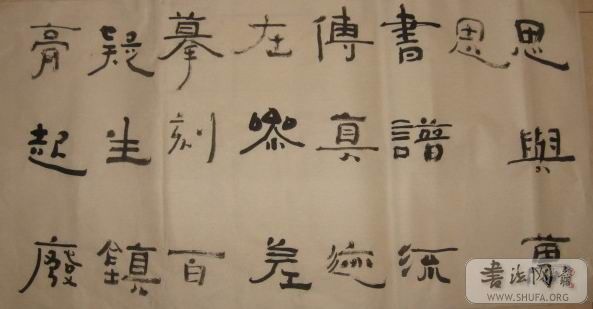 思與萬
思
書譜流
傳真迹
在參差
摹刻百
疑生鎮
膏起廢
書法网
WWW.SHUFA.ORG